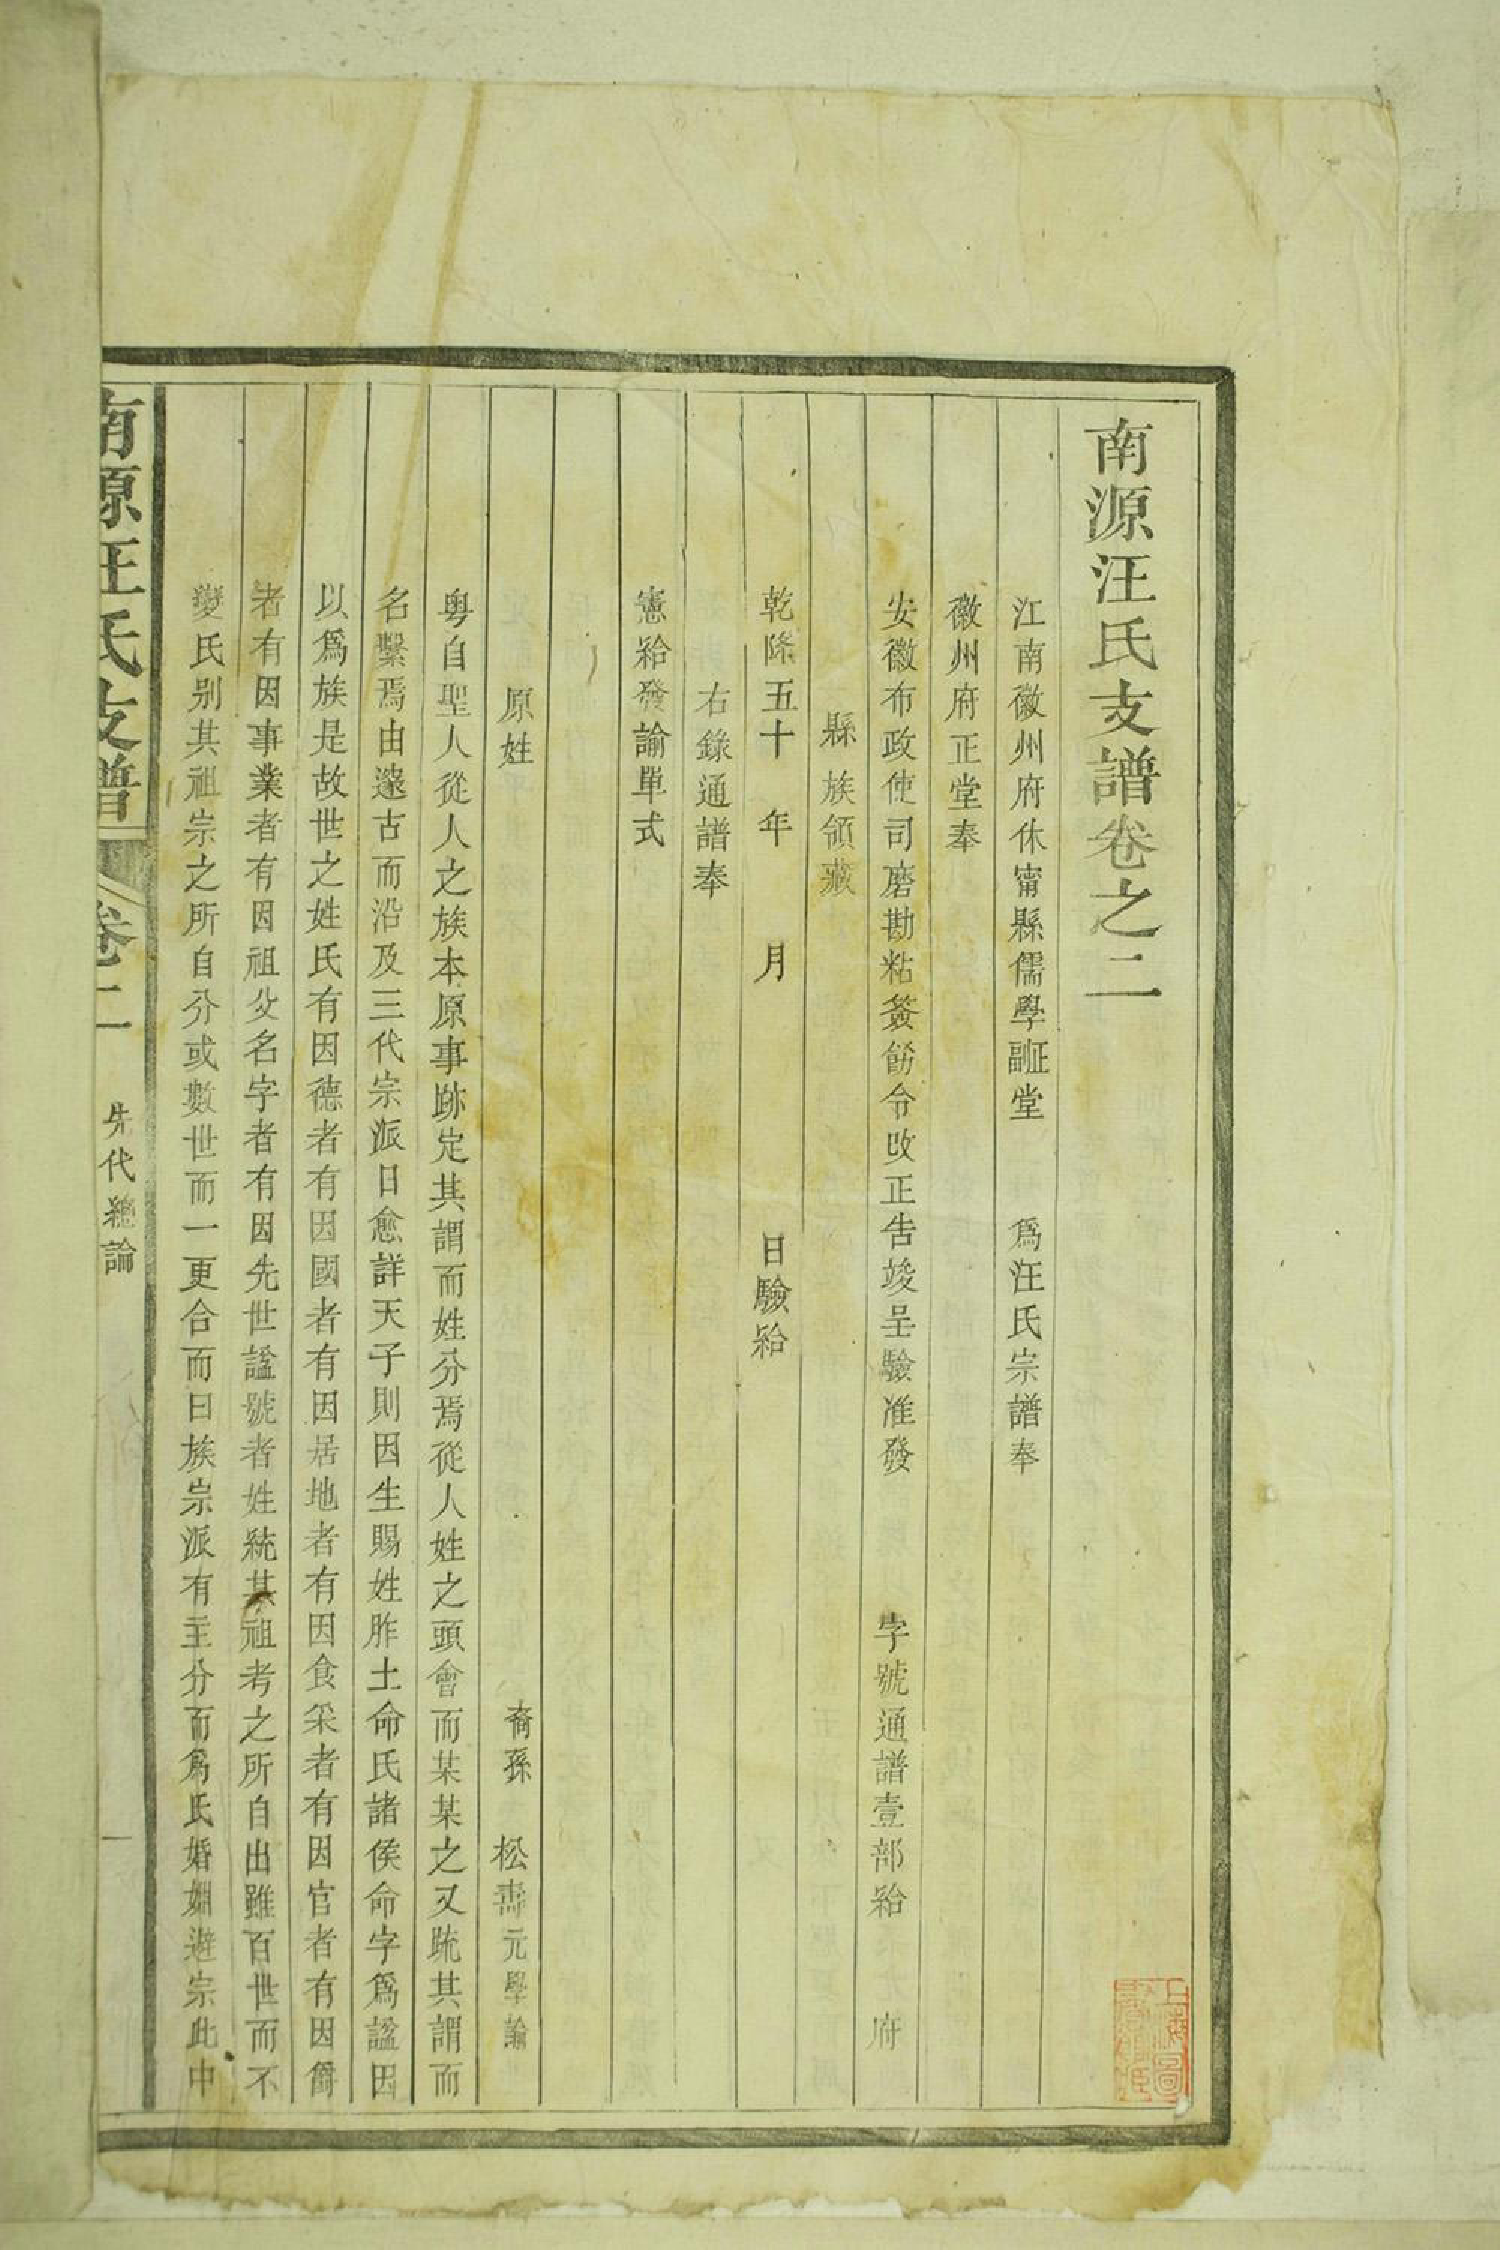 南源汪氏支譜卷之二
江南徽州府休甯縣儒學副正堂　爲汪氏宗譜奉
徽州府正堂奉
安徽布政使司磨勘粘簽飭令改正告竣呈驗准發　字號通譜壹部給　府
縣　族領藏
乾隆五十　年　月　日驗給
右錄通譜奉
憲給發諭單式
原姓　裔孫　松壽元學論
粵自聖人從人之族本原事跡定其謂而姓分焉從人姓之頭會而某某之又䟽其謂而
名繫焉由邃古而沿及三代宗派日愈詳天子則因生賜姓胙土命氏諸侯命字爲諡因
以爲族是故世之姓氏有因德者有因國者有因居地者有因食采者有因官者有因爵
者有因事業者有因祖父名字者有因先世諡號者姓統其祖考之所自出雖百世而不
變氏别其祖宗之所自分或數世而一更合而曰族宗派有主分而爲氏婚姻避宗此中
南源汪氏支譜　卷二　先代總論　一
上海圖